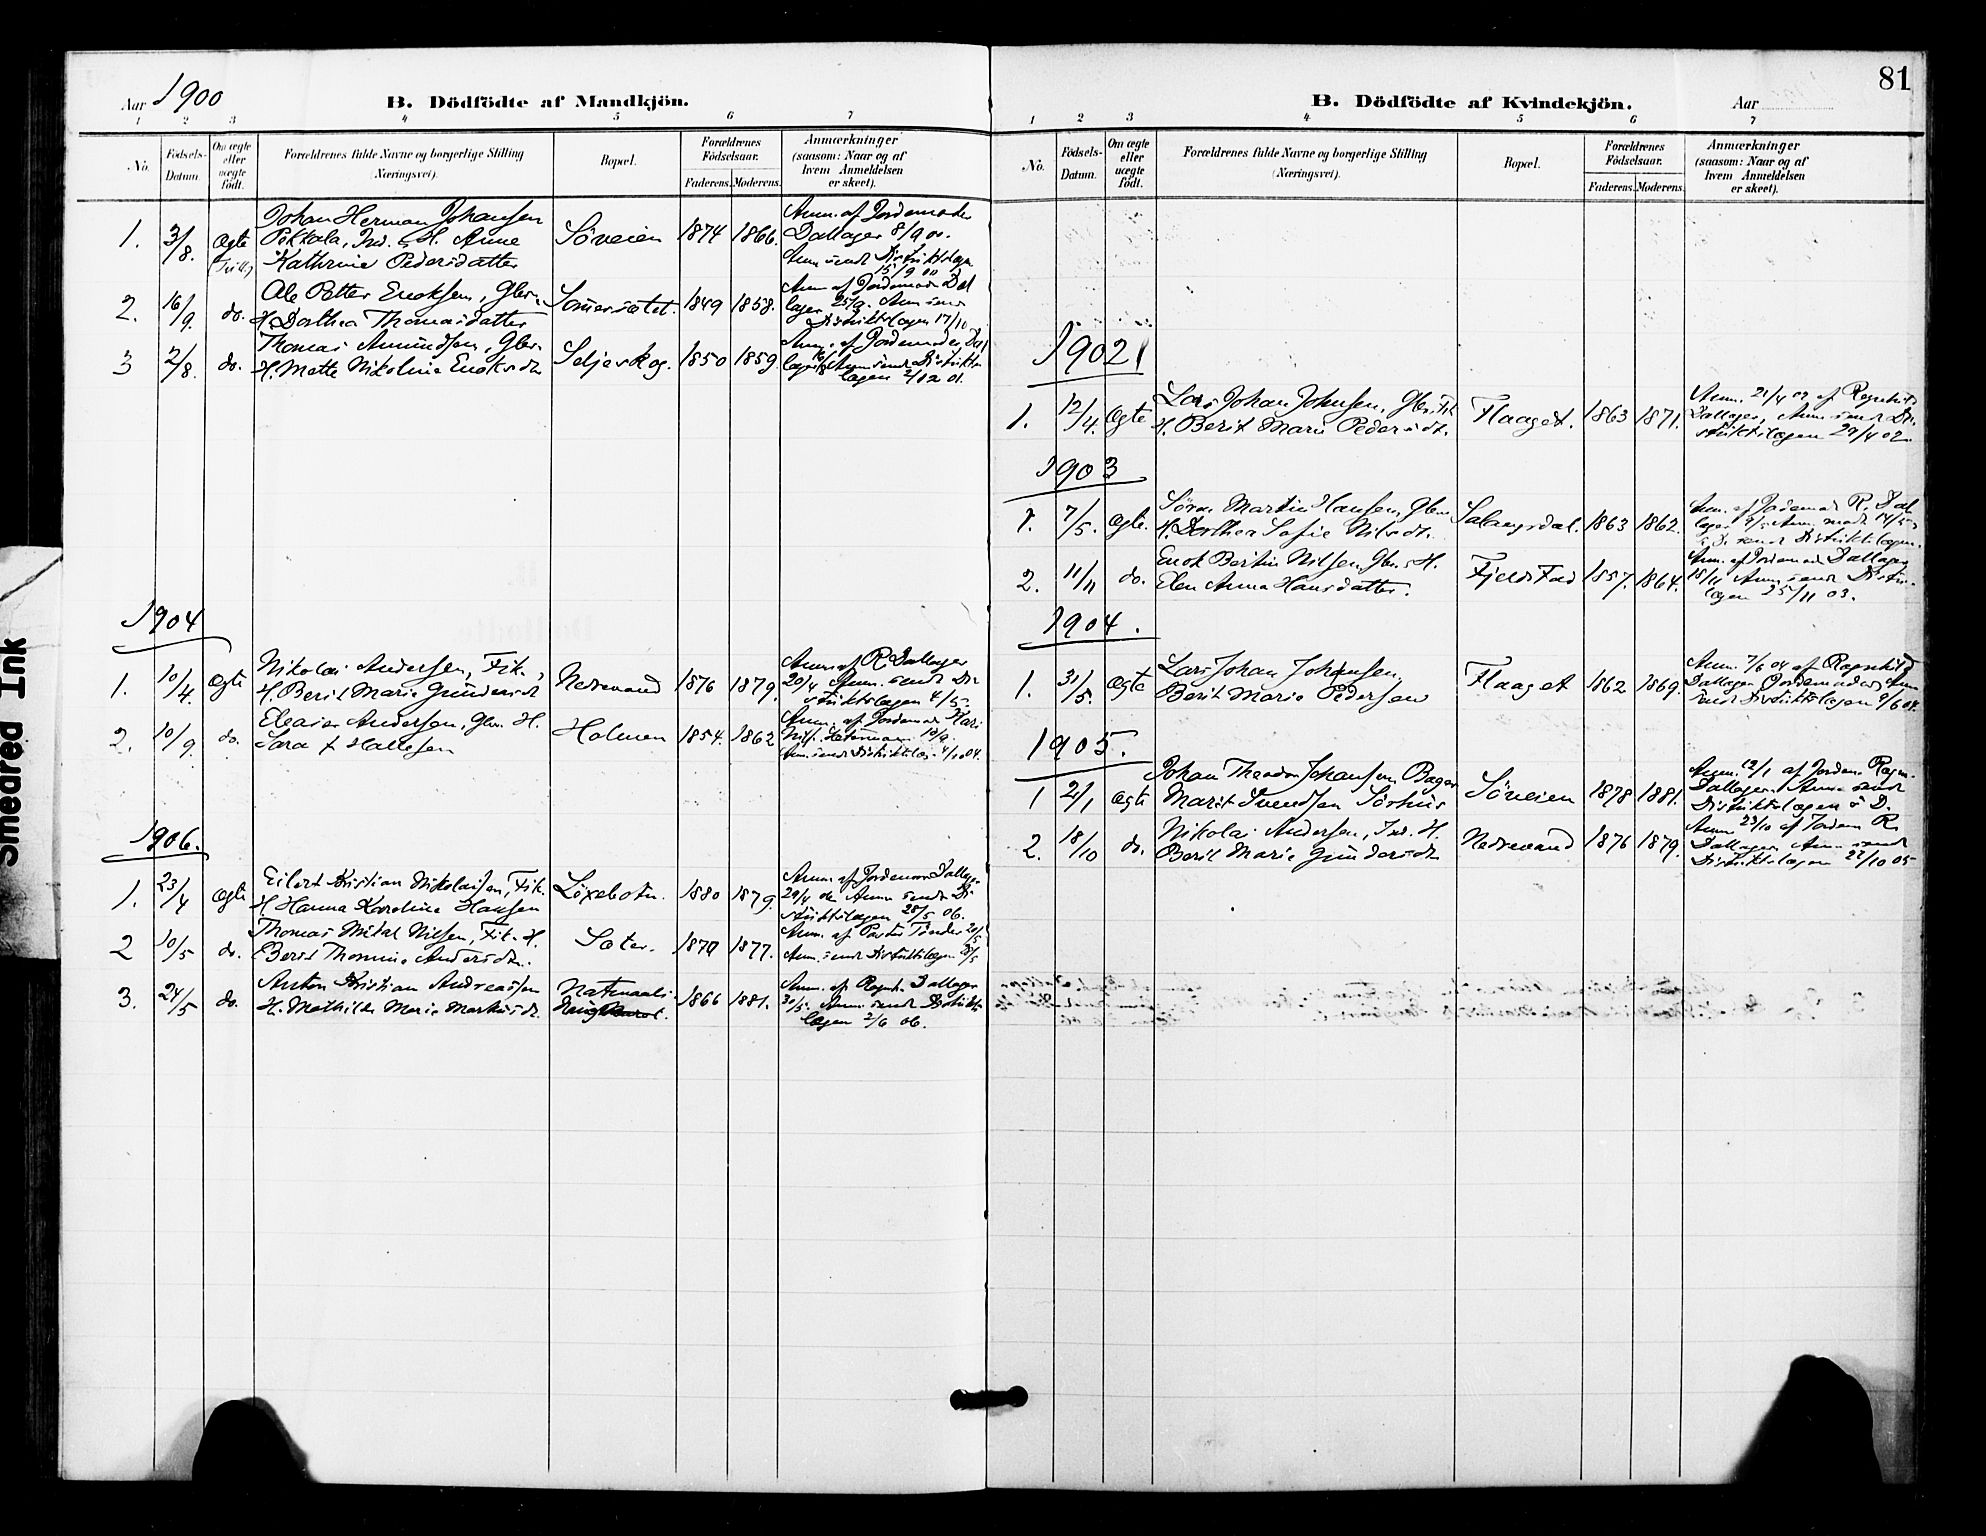 Aar 1900
B. Dödfödte af Mandkjön.
1 2 3 4 5 6 7
No.
Födsels-Datum.
Om ægte eller uægte födt.
Forældrenes fulde Navne og borgerlige Stilling
(Næringsvei).
Bopæl.
Forældrenes Födselsaar.
Faderens. Moderens.
Anmærkninger
(saasom: Naar og af
hvem Anmeldelsen
er skeet).
1. 3/8. Ægte Johan Herman Johansen
Pokkala, Ind. H. Anne
Kathrine Pedersdatter
Söveien 1874 1866.
Anm. af Jordemoder
Dallager 8/9 00.
Anm. sendt Distriktslægen
15/9 00
2. 16/9. do. Ole Petter Enoksen, Gbr.
H. Dorthea Thomasdatter
1849 1858.
Anm. af Jordemoder Dal
lager 25/9. Anm. sendt
Distriktslægen 17/10
3 2/8. do. Thomas Amundsen, Gbr.
H. Mette Nikoline Enoksdtr
Seljeskog. 1850 1859.
Anm. af Jordemoder Dal
lager Anm. sendt Distrikts
lægen 2/02 01.
1904
1. 10/4. Ægte Nikolai Andersen, Fisk.,
H. Berit Marie Gundersdtr
Nedrevand 1876 1879.
Anm. af R. Dallager
20/4 Anm. sendt Di
striktslægen 4/5.
2. 10/9. do. Eleaser Andersen, Gbr. H.
Sara Hallesen
Holmen 1854. 1862
Anm. af Jordemod
10/9.
Anm. sendt Distriktslæg. 4/10 04.
1906.
1. 23/4 Ægte Eilert Kristian Nikolaisen, Fisk.
H. Hanna Karoline Hansen
Löxebotn. 1880 1879.
Anm. af Jordemor Dallager
29/4 06 Anm. sendt Di
striktslægen 28/5 06.
2 10/5 do. Thomas Mikal Nilsen, Fisk. H.
Berit Thomine Andersdtr.
Sæter. 1877.
Anm. af Pastor Tönder
Anm. sendt Distriktslægen
3. 24/5 do. Anton Kristian Andreassen
H. Mathilde Marie Markusdtr.
1866 1881.
Anm. af Ragnh. Dallager
30/5. Anm. sendt Distrikts
lægen 2/6 06.
81
B. Dödfödte af Kvindekjön.
Aar
1 2 3 4 5 6 7
No.
Födsels-Datum.
Om ægte eller uægte födt.
Forældrenes fulde Navne og borgerlige Stilling
(Næringsvei).
Bopæl.
Forældrenes Födselsaar.
Faderens. Moderens.
Anmærkninger
(saasom: Naar og af
hvem Anmeldelsen
er skeet).
1902
1. 12/4. Ægte Lars Johan Johnsen, Gbr., Fisk
H. Berit Marie Pedersdtr.
Flaaget. 1863 1871.
Anm. 21/4 02 af Ragnhild
Dallager, Anm. sendt Di-
striktslægen 29/4 02.
1903
1. 7/5. Ægte. Sören Martin Hansen, Gbr.
H. Dorthea Sofie Nilsdtr.
Salangsdal. 1863 1862.
Anm. af Jordemod R. Dal
lager
sendt Distriktslægen.
2. 11/11 do. Enok Bertin Nilsen, Gbr. H.
Elen Anna Hansdatter.
Fjeldstad 1857. 1864.
Anm. af Jordemod Dallager
15/11 Anm. sendt Distrikts-
lægen 25/11 03.
1904.
1. 31/5. Ægte Lars Johan Johansen,
Berit Marie Pedersen
Flaaget 1862 1869.
Anm. 7/6 04 af Ragnhild
Dallager Jordemoder, Anm
sendt Distriktslægen 9/6 04.
1905.
1 2/1 Ægte Johan Theodor Johansen, Bager
Marit Svendsen Sörhus
Söveien 1878 1881.
Anm. 12/1 af Jordem. Ragn.
Dallager. Anm. sendt
Distriktslægen s. D.
2. 18/10 do. Nikolai Andersen, Ind. H.
Berit Marie Gundersdtr
Nedrevand 1876 1879.
Anm 23/10 af Jordem R.
Dallager, Anm. sendt
Distriktslægen 27/10 05
Smeared Ink